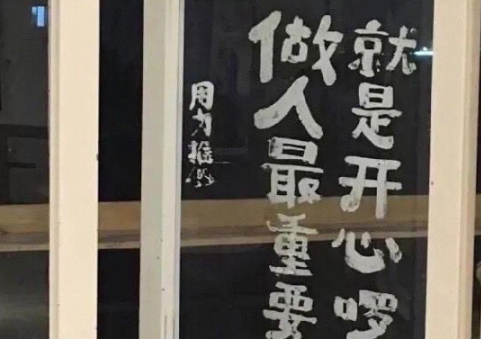 做人最重要
就是开心啰
用力推